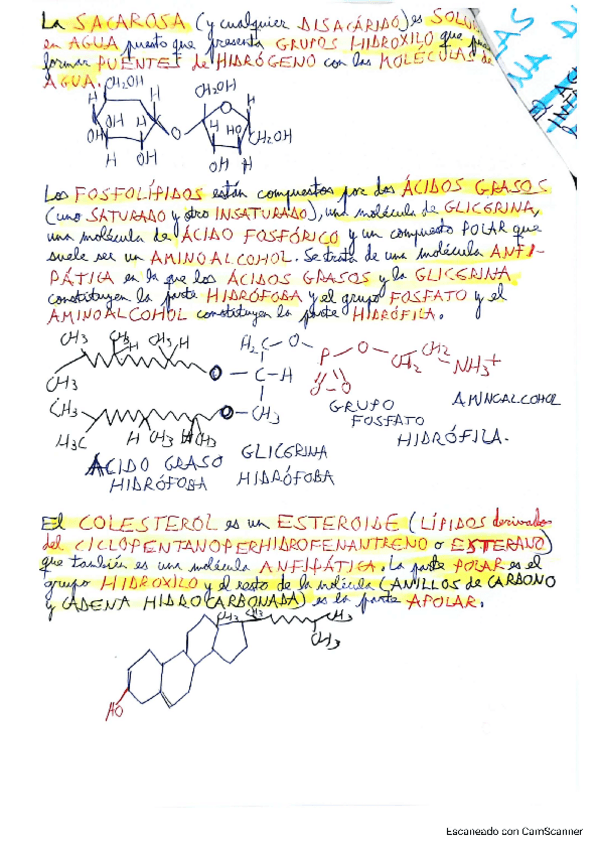 La SACAROSA (y cualquier DISACÁRIDO) es SOLU
en AGUA puesto que presenta GRUPOS HIDROXILO que
formar PUENTES de HIDRÓGENO con las MOLÉCULAS de
AGUA.
CH2OH
CH2OH
H
H
H
OH
H
H
HO
OH
OH
O
CH2OH
H
OH
OH
H
Los FOSFOLÍPIDOS están compuestos por dos ÁCIDOS GRASOS
(uno SATURADO y otro INSATURADO), una molécula de GLICERINA,
una molécula de ÁCIDO FOSFÓRICO y un compuesto POLAR que
suele ser un AMINOALCOHOL. Se trata de una molécula ANFI-
PÁTICA en la que los ÁCIDOS GRASOS y la GLICERINA
constituyen la parte HIDRÓFOBA y el grupo FOSFATO y el
AMINOALCOHOL constituyen la parte HIDRÓFILA.
CH3
H2C-O-P-O-CH2 CH2-NH3+
CH3
O-C-H
CH3
O-CH3
H3C
GRUPO
FOSFATO
AMINOALCOHOL
HIDRÓFILA.
ÁCIDO GRASO
HIDRÓFOBA
GLICERINA
HIDRÓFOBA
El COLESTEROL es un ESTEROIDE (LÍPIDOS derivados
del CICLOPENTANOPERHIDROFENANTRENO o ESTERANO)
que también es una molécula ANFIPÁTICA. La parte POLAR es el
grupo HIDROXILO y el resto de la molécula (ANILLOS de CARBONO
y CADENA HIDROCARBONADA) es la parte APOLAR.
CH3
CH3
CH3
HO
Escaneado con CamScanner